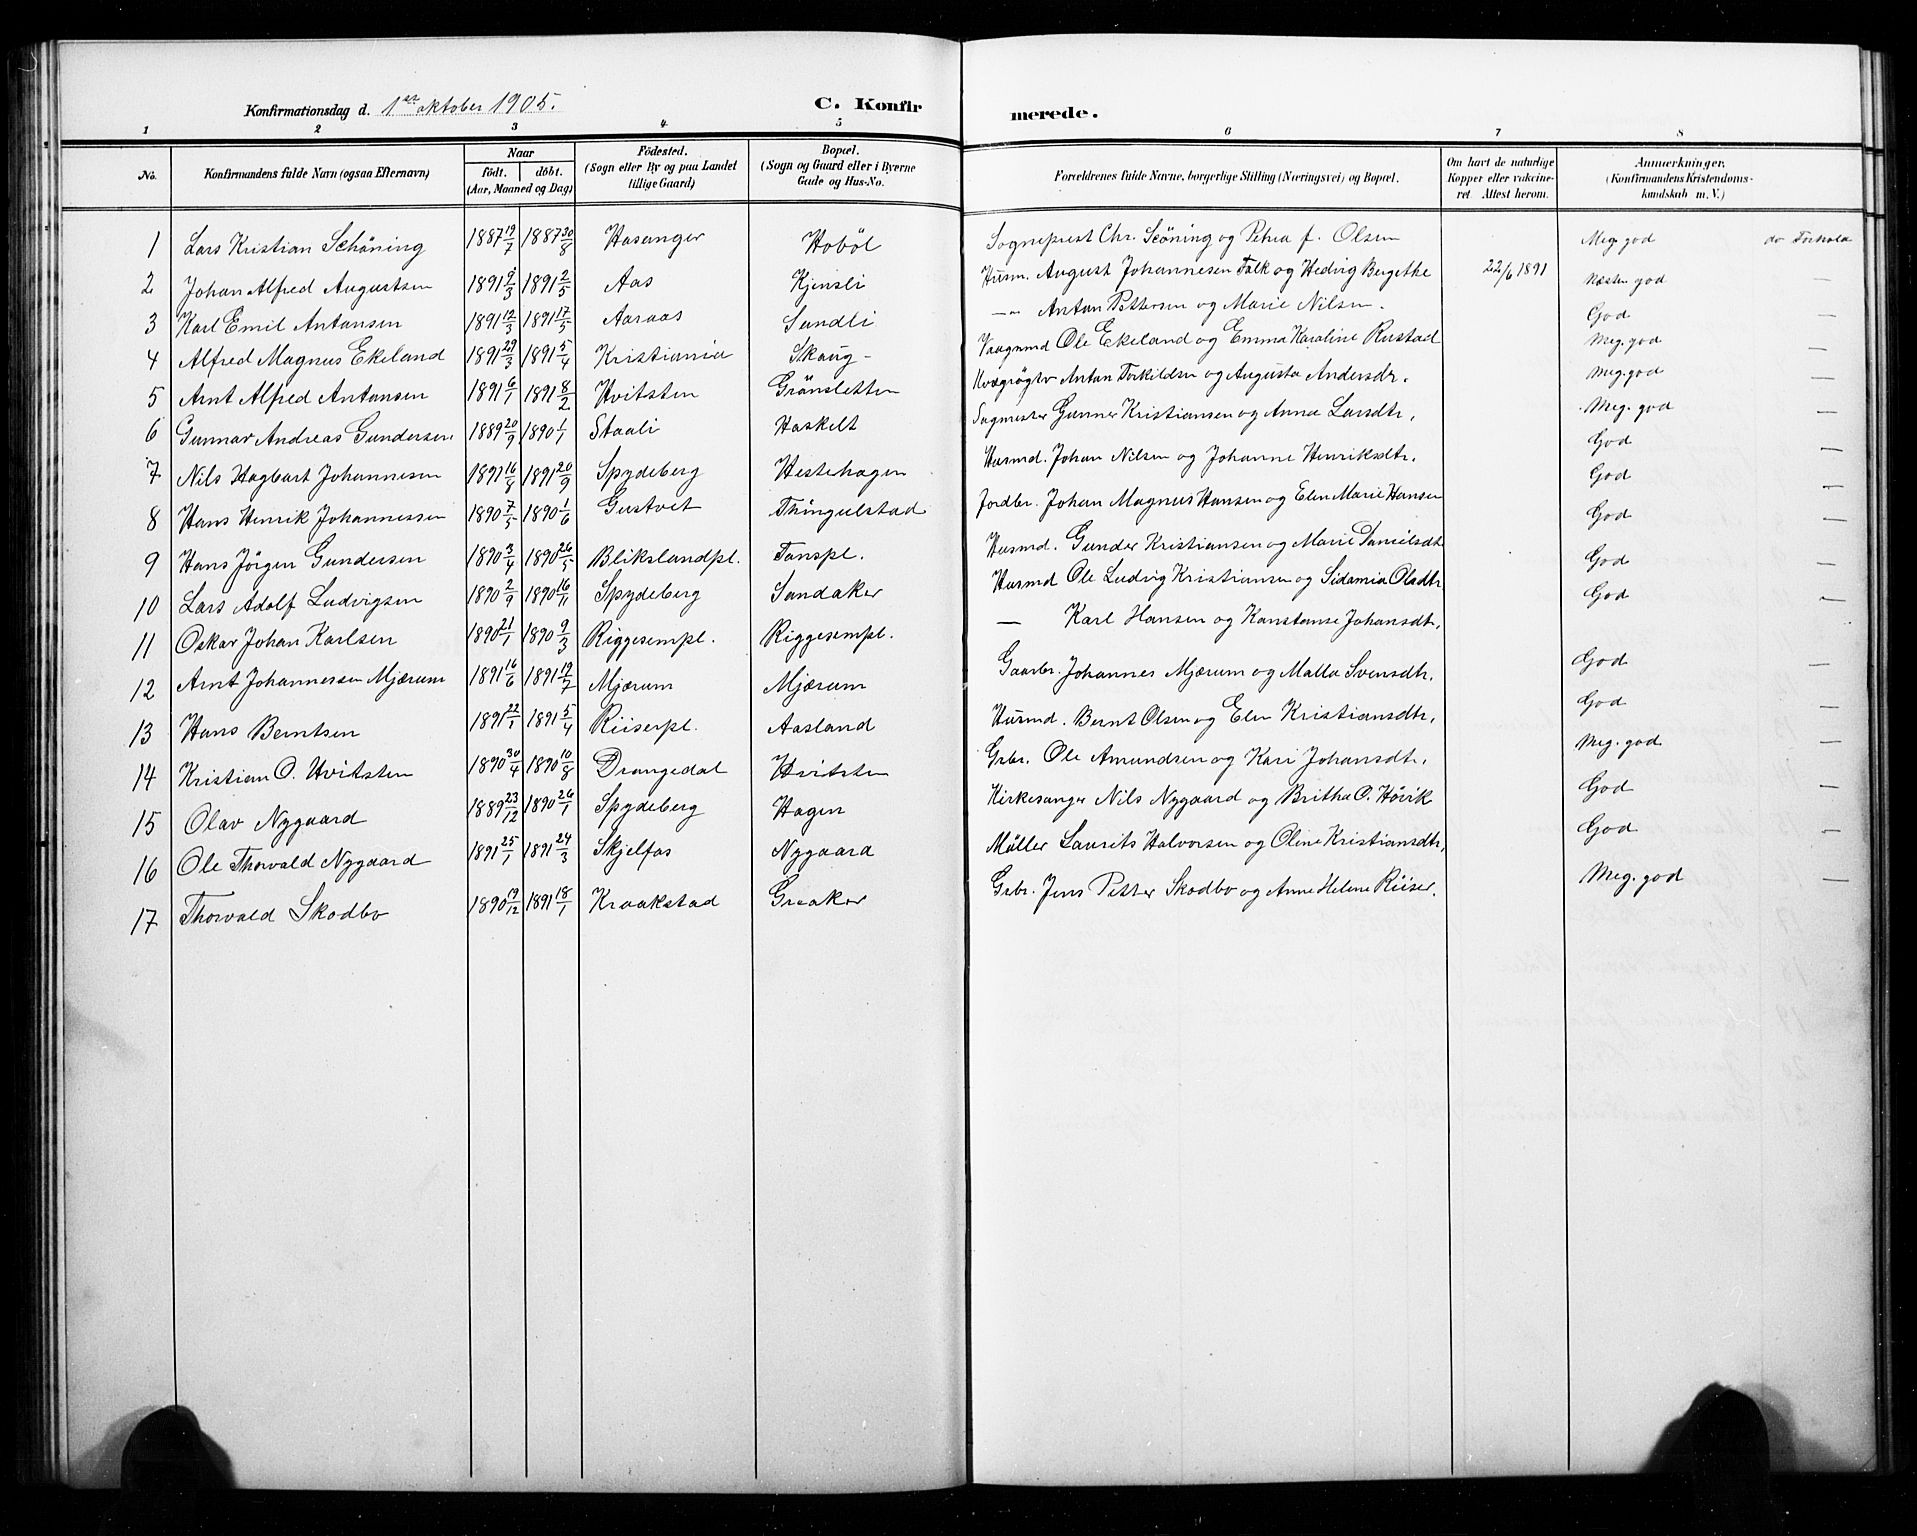 Konfirmationsdag d. 1ste oktober 1905. C. Konfir merede.
1 2 3 4 5 6 7 8
No. Konfirmandens fulde Navn (ogsaa Efternavn) Naar født. døbt. (Aar, Maaned og Dag) Födested. (Sogn eller By og paa Landet tillige Gaard) Bopæl. (Sogn og Gaard eller i Byerne Gade og Hus-No. Forældrenes fulde Navne, borgerlige Stilling (Næringsvei) og Bopæl. Om havt de naturlige Kopper eller vakcineret. Attest herom. Anmerkninger, (Konfirmandens Kristendomskundskab m. V.)
1 Lars Kristian Schöning 1887 19/7 1887 30/8 Hasanger Hobøl Sogneprest Chr. Scöning og Petra f. Olsen Meg. god do Forhold
2 Johan Alfred Augustsen 1891 9/3 1891 2/5 Aas Kjensli Husm. August Johannesen Falk og Hedvig Bergethe 22/6 1891 Næsten god —
3 Karl Emil Antonsen 1891 12/3 1891 17/5 Aaraas Sundli —"— Anton Pettersen og Marie Nilsen. God —
4 Alfred Magnus Ekeland 1891 29/3 1891 5/4 Kristiania Skaug - Vaagnmd Ole Ekeland og Emma Karoline Rustad Meg. god —
5 Arnt Alfred Antonsen 1891 6/1 1891 8/2 Hvitsten Grönsletten Kvægrögter Anton Torkildsen og Augusta Andersdr. Meg. god —
6 Gunnar Andreas Gundersen 1889 20/9 1890 1/1 Staali Haskelt Sagmester Gunner Kristiansen og Anna Larsdtr, Meg. god —
7 Nils Hagbart Johannesen 1891 16/8 1891 20/9 Spydeberg Hestehagen Husmd. Johan Nilsen og Johanne Henriksdtr. God —
8 Hans Henrik Johannessen 1890 7/5 1890 1/6 Gustvet Thingulstad Jordbr. Johan Magnus Hansen og Elen Marie Hansen God —
9 Hans Jörgen Gundersen 1890 3/4 1890 26/5 Blikslandpl. Tonspl. Husmd. Gunder Kristiansen og Marie Danielsdt God —
10 Lars Adolf Ludvigsen 1890 2/9 1890 16/11 Spydeberg Sandaker Husmd Ole Ludvig Kristiansen og Sidamia Olsdtr God —
11 Oskar Johan Karlsen 1890 21/1 1890 9/3 Riggesempl. Riggesempl. — Karl Hansen og Konstanse Johansdtr, God —
12 Arnt Johannessen Mjærum 1891 16/6 1891 19/7 Mjærum Mjærum Gaarbr. Johannes Mjærum og Malla Svensdtr. God —
13 Hans Berntsen 1891 22/1 1891 5/4 Riiserpl. Aasland Husmd. Bernt Olsen og Elen Kristiansdtr, God —
14 Kristian O. Hvitsten 1890 30/4 1890 10/8 Drangedal Hvitsten Grbr. Ole Amundsen og Kari Johansdtr, Meg. god —
15 Olav Nygaard 1889 23/12 1890 26/1 Spydeberg Hagen Kirkesanger Nils Nygaard og Britha O. Hövik God —
16 Ole Thorvald Nygaard 1891 25/1 1891 24/3 Skjelfos Nygaard Müller Laurits Halvorsen og Oline Kristiansdtr, God —
17 Thorvald Skodbo 1890 19/12 1891 18/1 Kraakstad Graaker Grbr. Jens Petter Skodbo og Anne Helene Riiser. Meg. god —